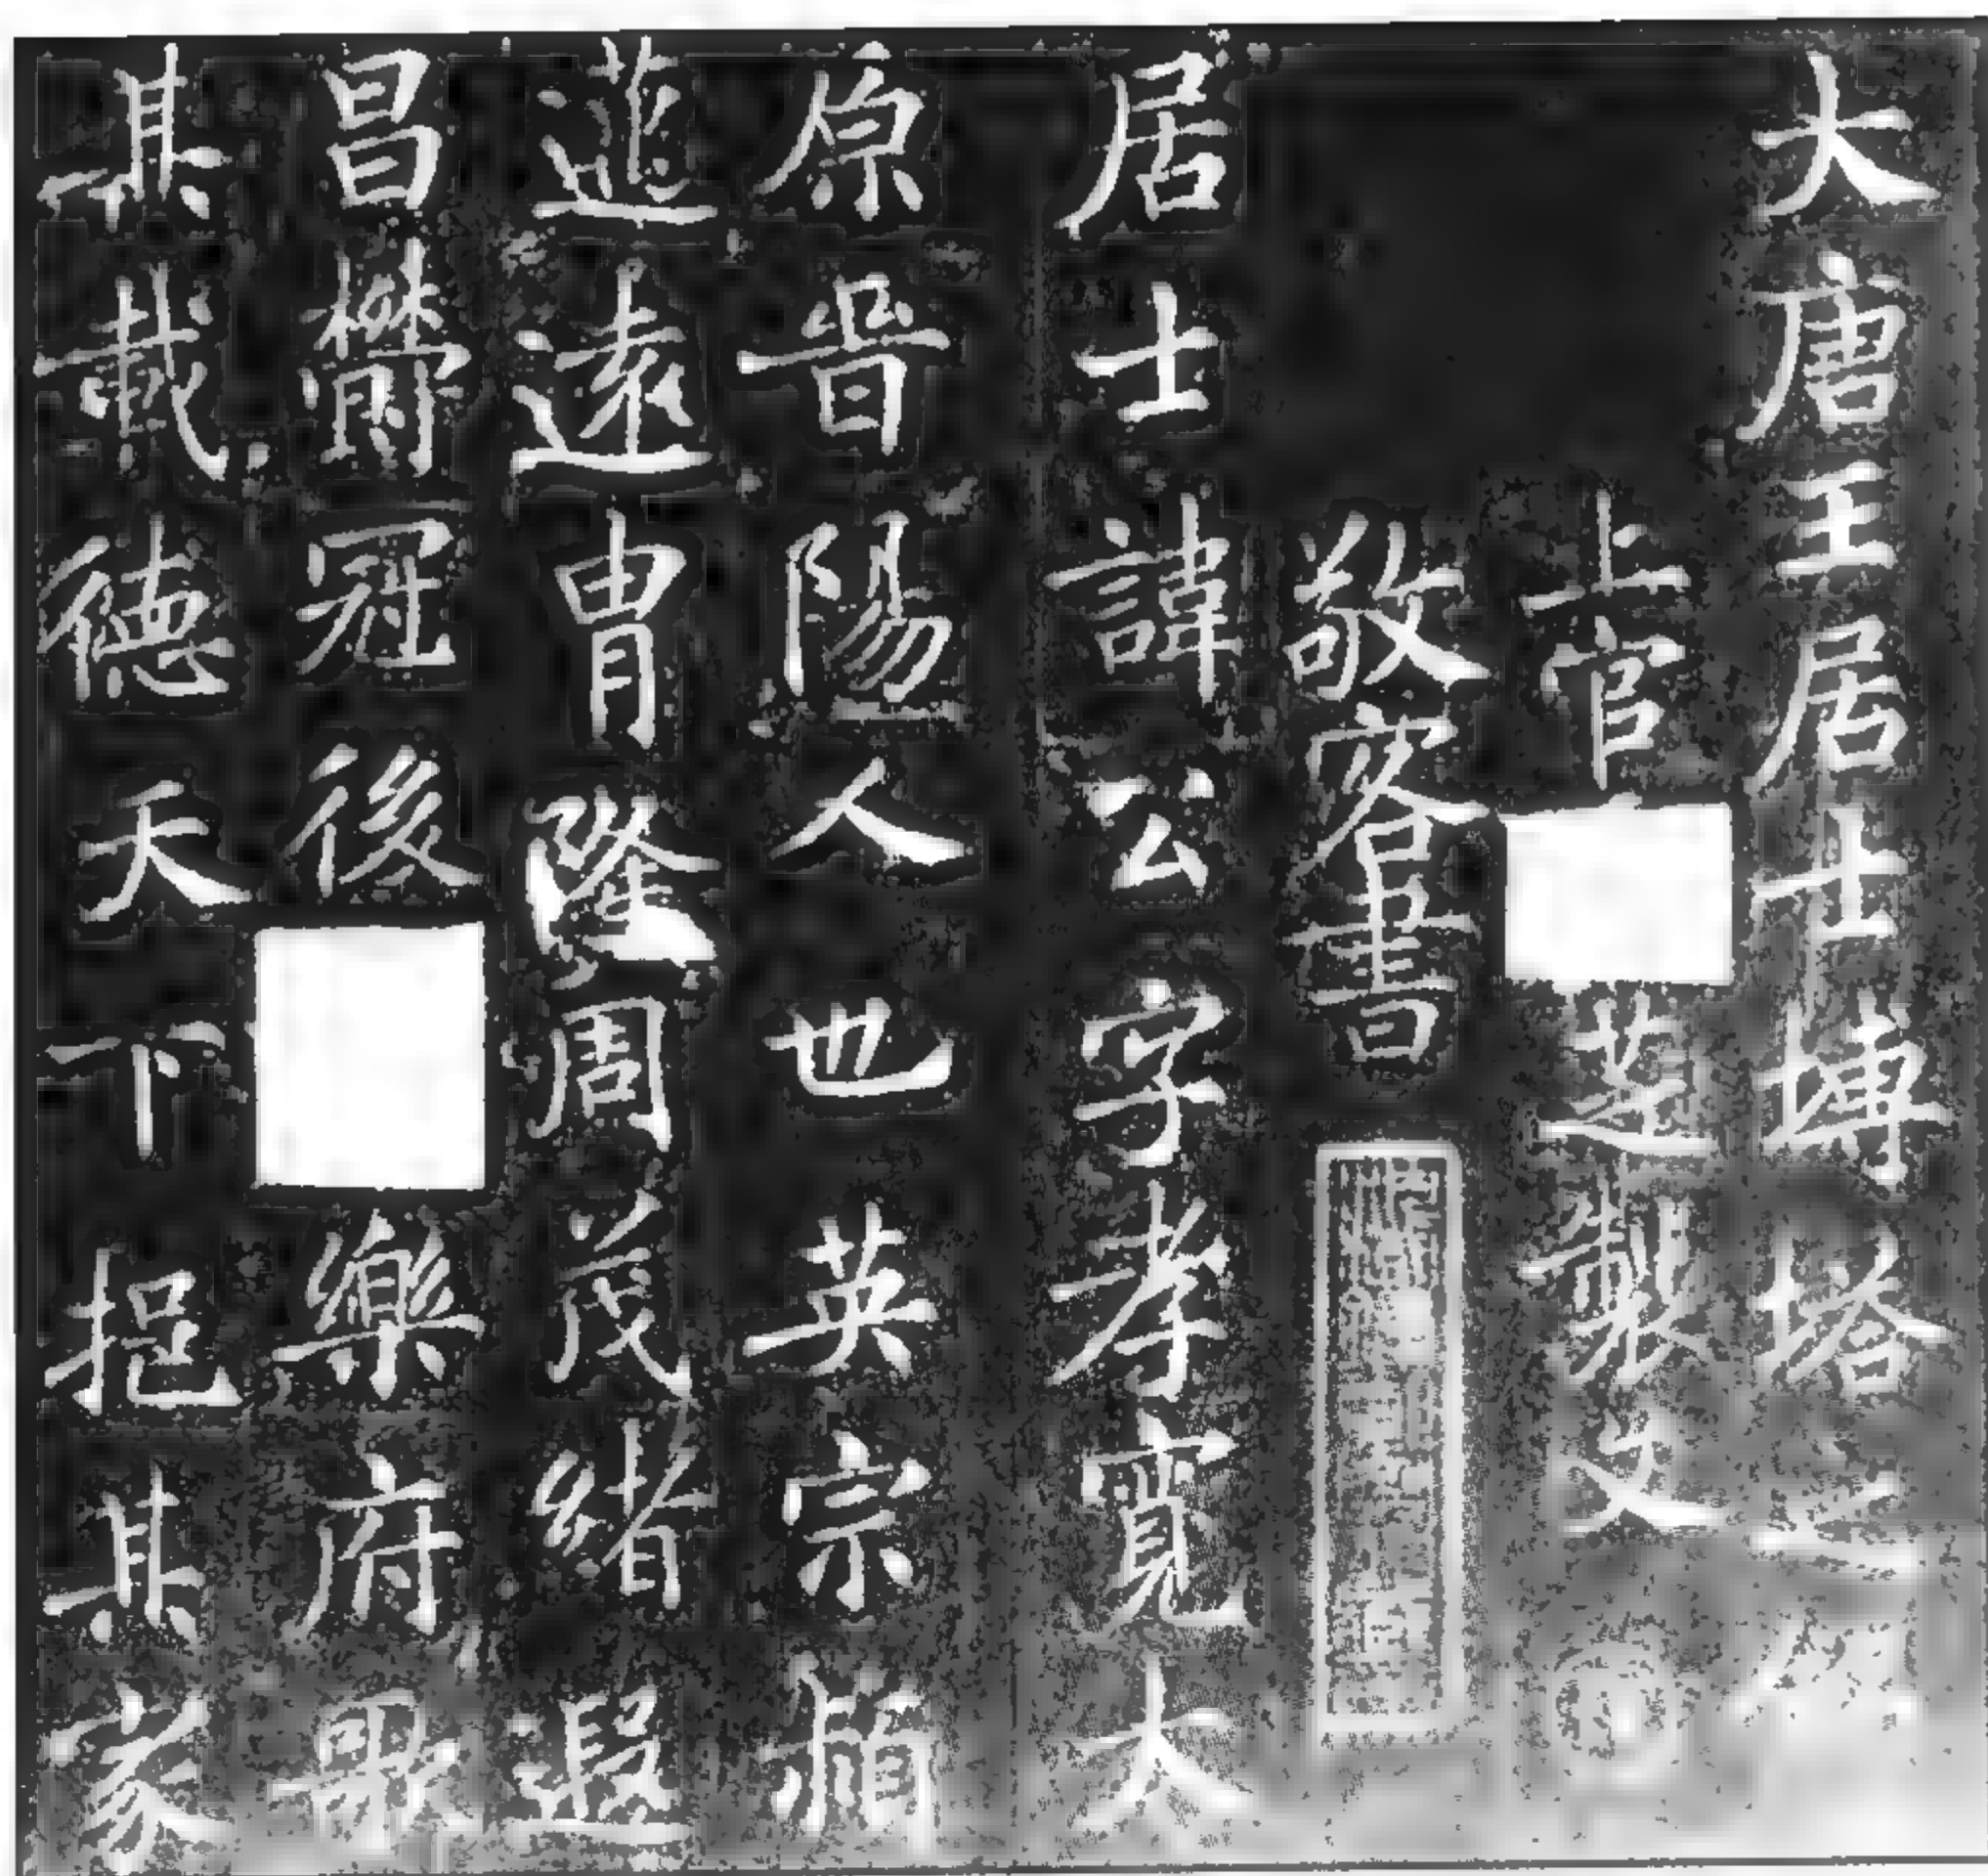 大唐王居士塼塔之
上官芝製文
敬客書
居士諱公字孝寬太
原晉陽人也英宗穎
邁遠冑隆周茂緒遐
昌欝冠後樂府歌
其載德天下挹其家